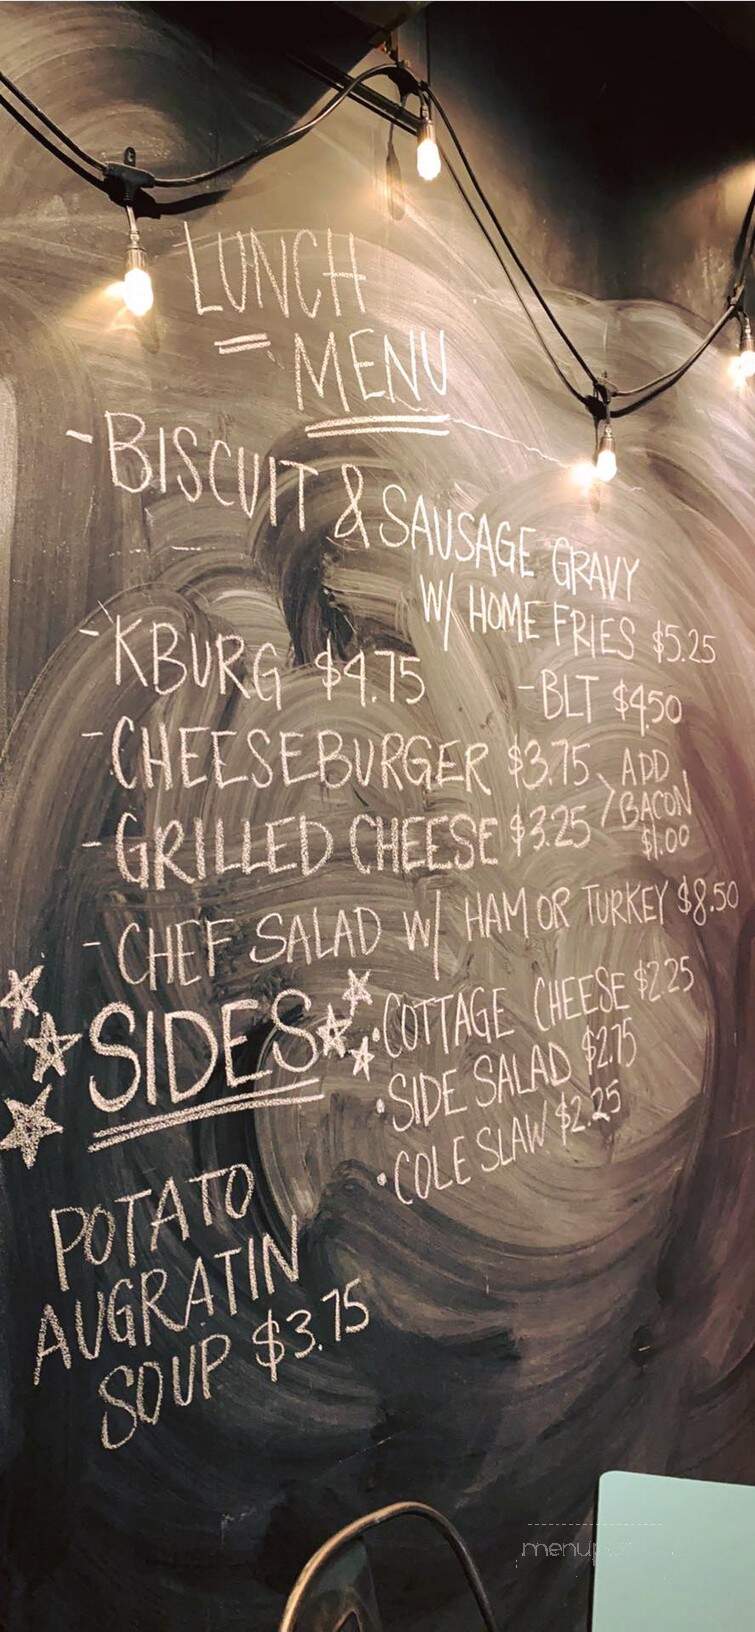 LUNCH
MENU
- BISCUIT & SAUSAGE GRAVY
W/ HOME FRIES $5.25
- KBURG $4.75
- BLT $4.50
- CHEESEBURGER $3.75
- GRILLED CHEESE $3.25
> ADD
BACON
$1.00
- CHEF SALAD W/ HAM OR TURKEY $8.50
SIDES
• COTTAGE CHEESE $2.25
• SIDE SALAD $2.75
• COLE SLAW $2.25
POTATO
AUGRATIN
SOUP $3.75